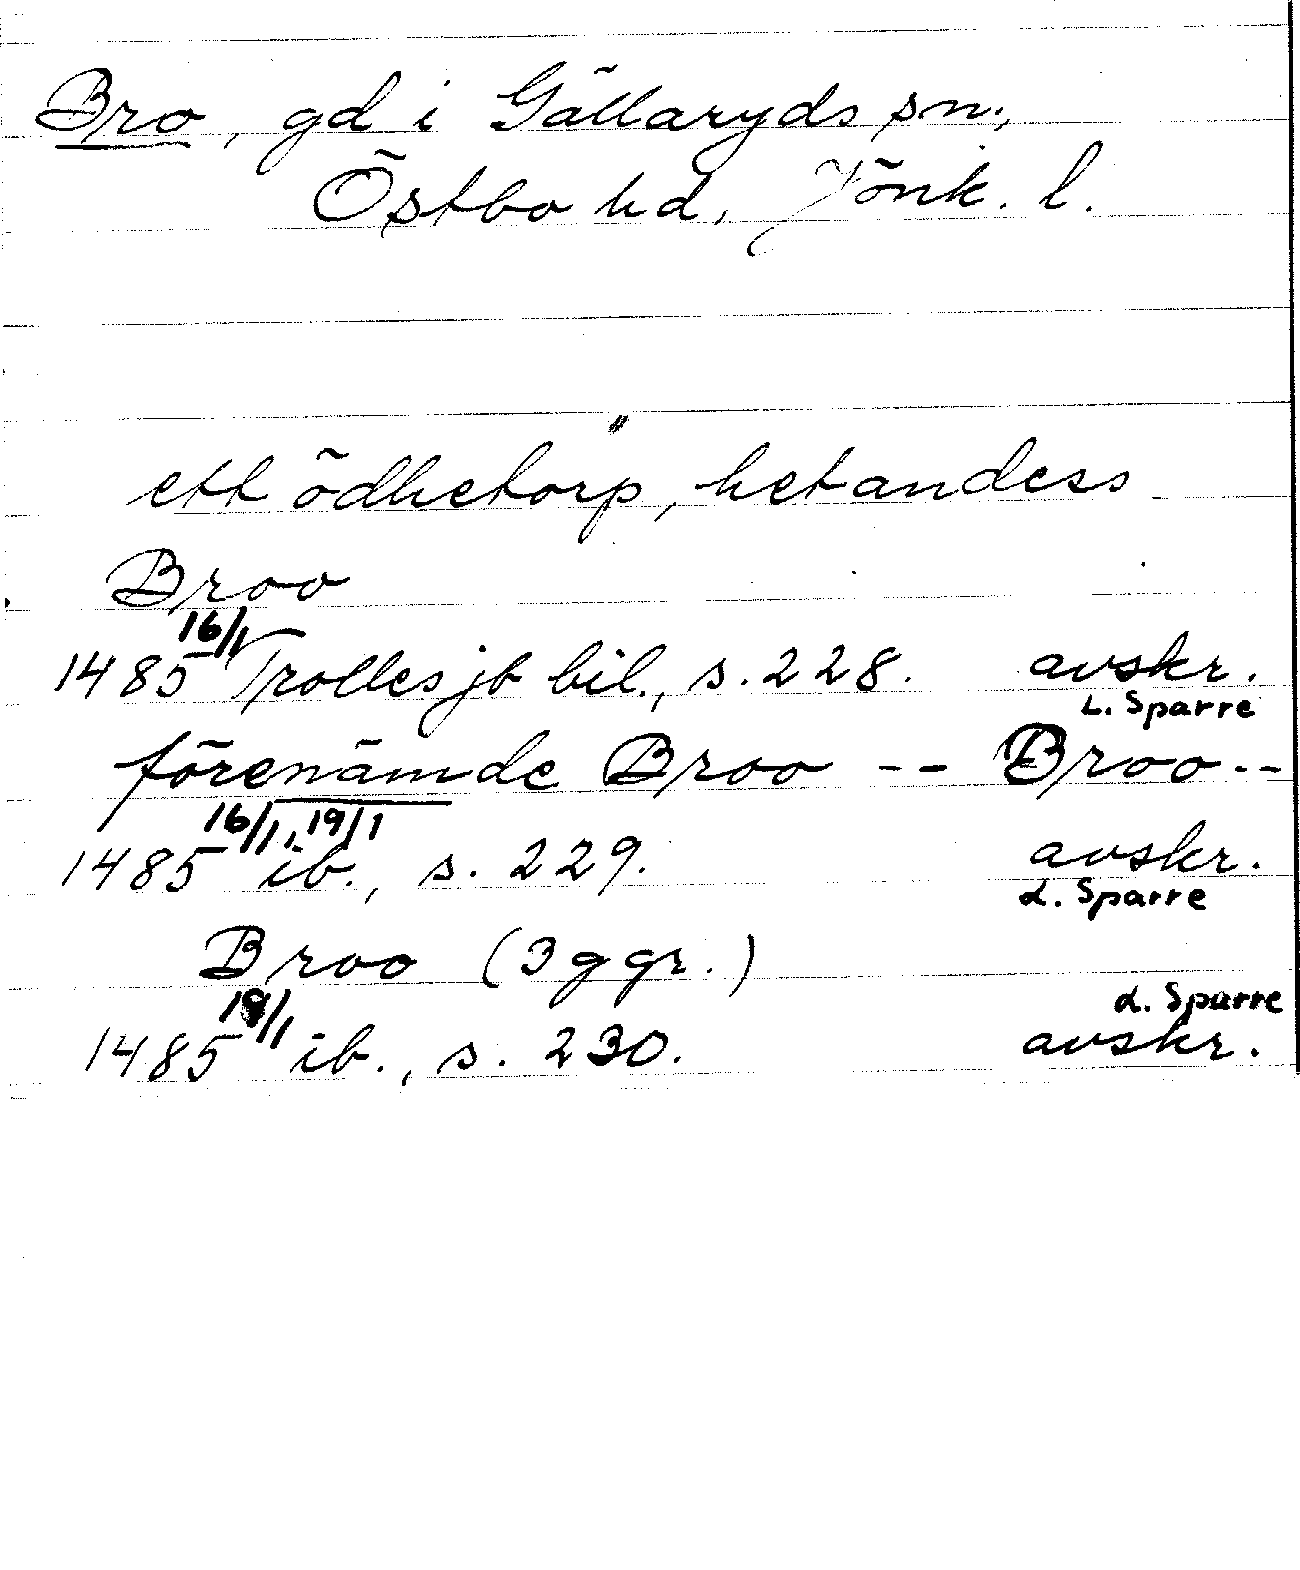 Bro, gd i Gällaryds sn.,
Östbo hd, Jönk. l.
ett ödhetorp, hetandess
Broo
1485 16/1 Trolles jb bil., s. 228. avskr.
L. Sparre
förenämde Broo -- Broo --
1485 16/1, 19/1 ib., s. 229. avskr.
L. Sparre
Broo (3 ggr.)
L. Sparre
1485 19/1 ib., s. 230. avskr.